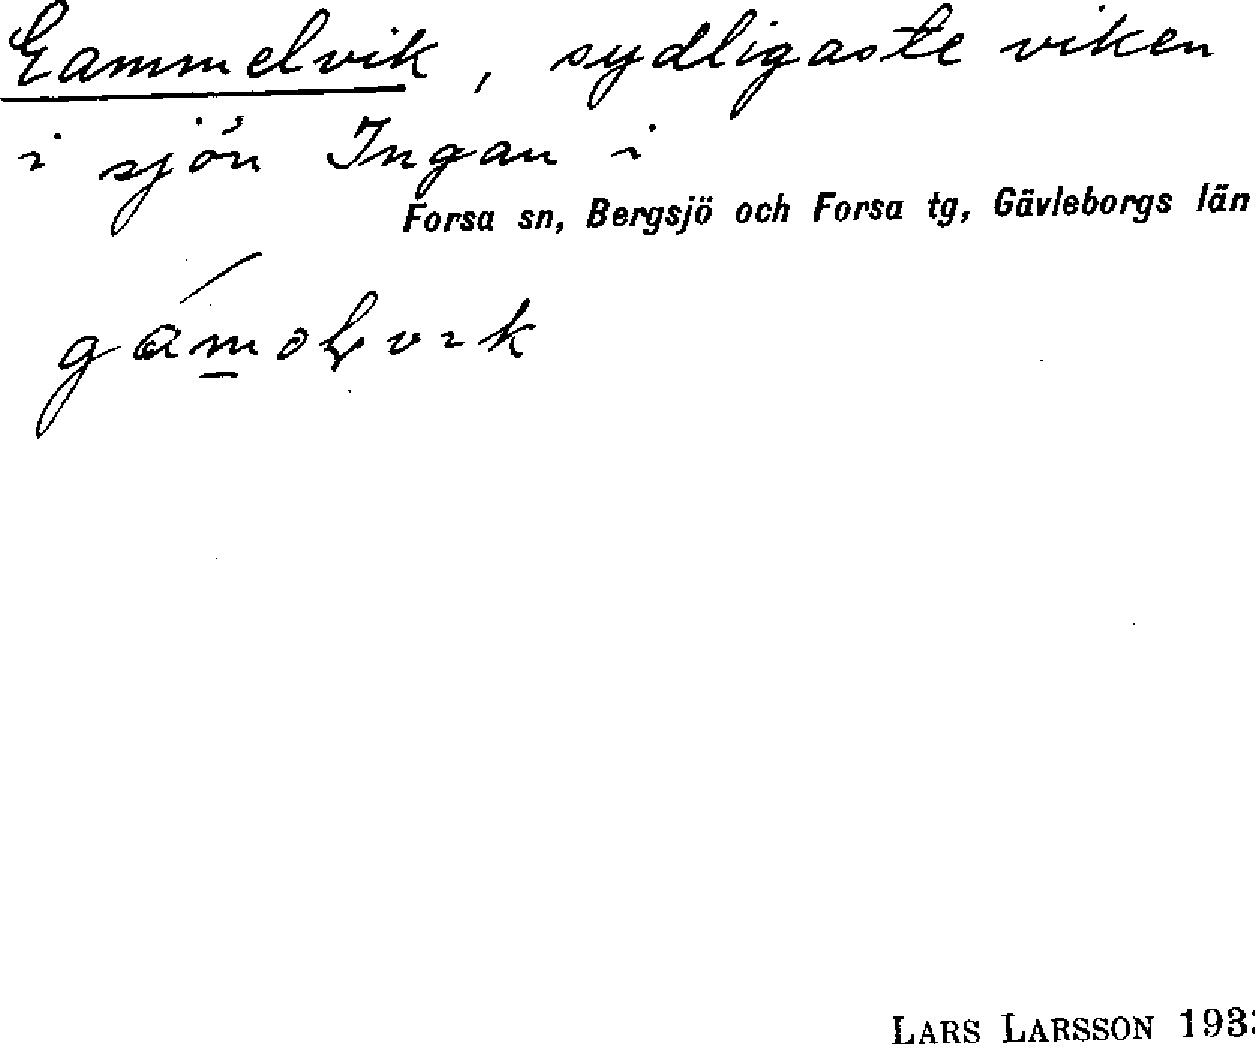 Gammelvik, sydligaste viken
i sjön Ingan i
Forsa sn, Bergsjö och Forsa tg, Gävleborgs län
LARS LARSSON 1933